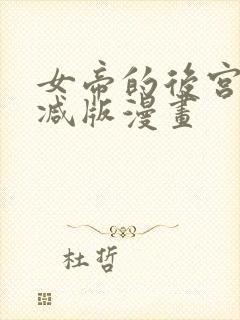 女帝的後宮
減版漫畫
杜哲